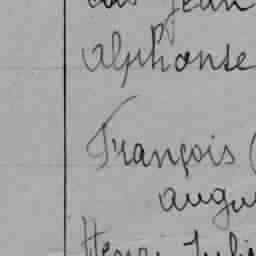 Jean
Alphonse
François (
augu
Henri Juli